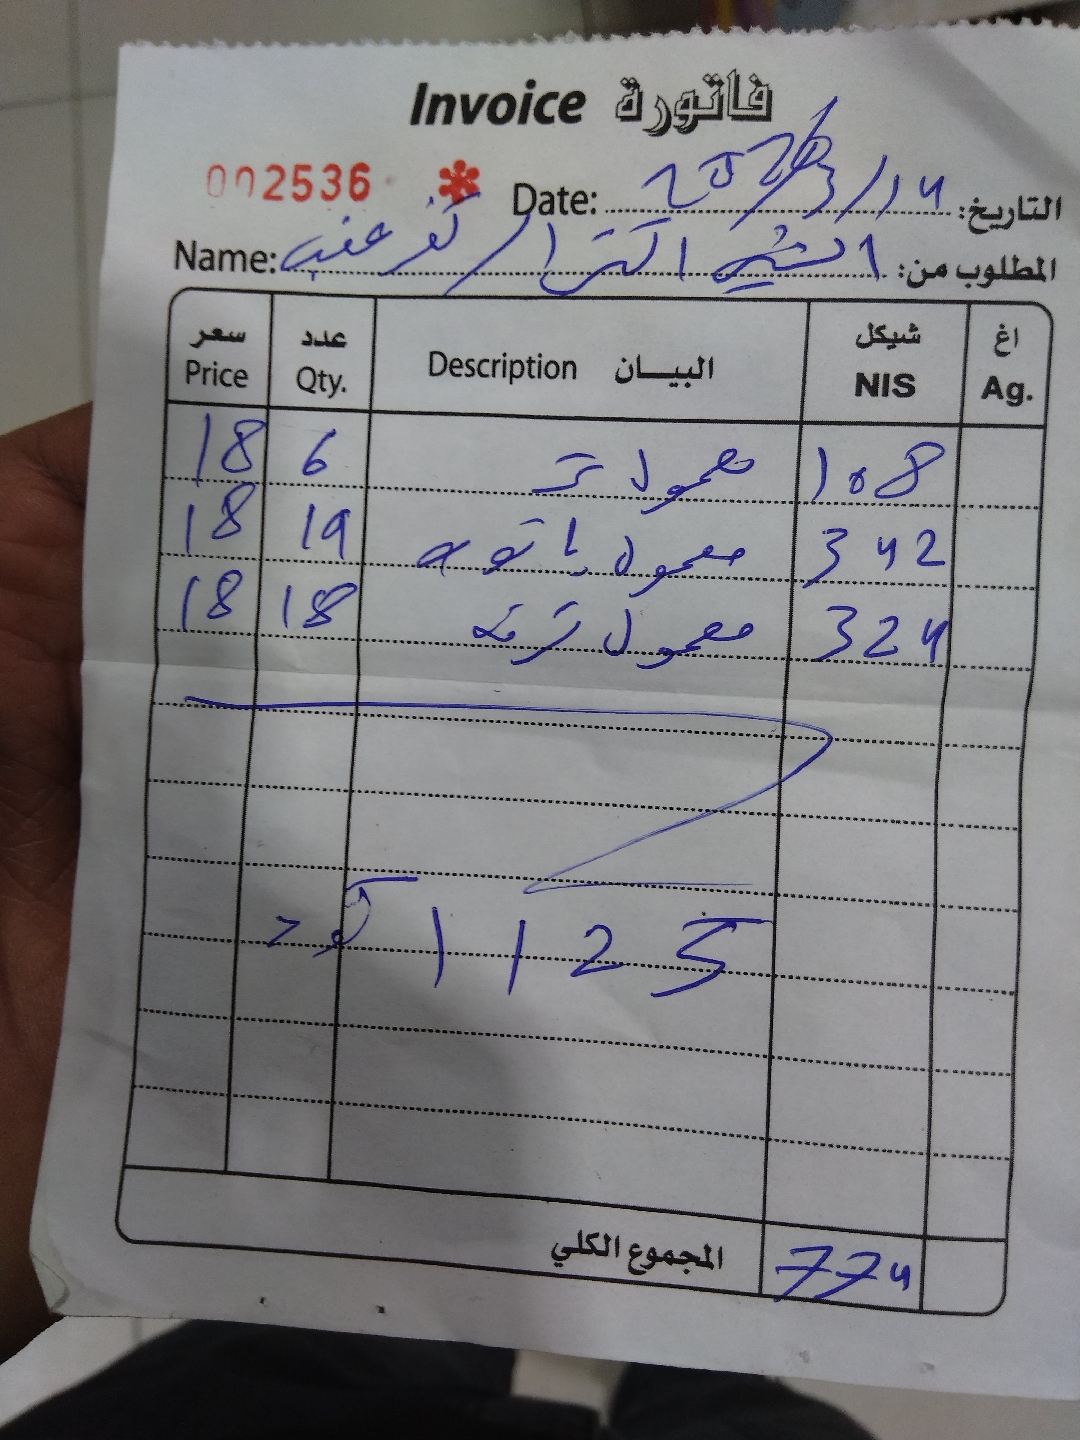 Invoice فاتورة
002536
Date: 2026/3/14 التاريخ:
Name: اكسترا / كفر عقب المطلوب من:
سعر عدد شيكل اغ
Price Qty. Description البيـــان NIS Ag.
18 6 معمول تمر 108
18 19 معمول 342
18 18 معمول 324
1125
المجموع الكلي 774